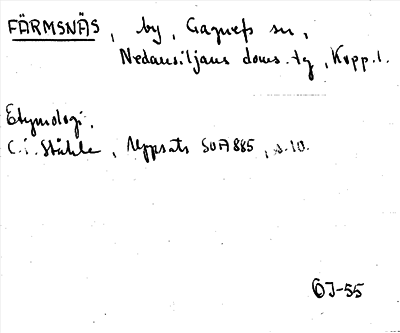 FÄRMSNÄS, by, Gagnefs sn,
Nedansiljans doms. tg, Kopp. l.
Etymologi.
C. I. Ståhle, Uppsats SOA 885, s. 10.
ÖJ-55